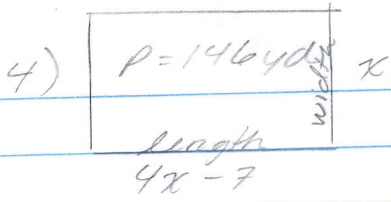 4)
P = 146 yd
width
x
length
4x - 7